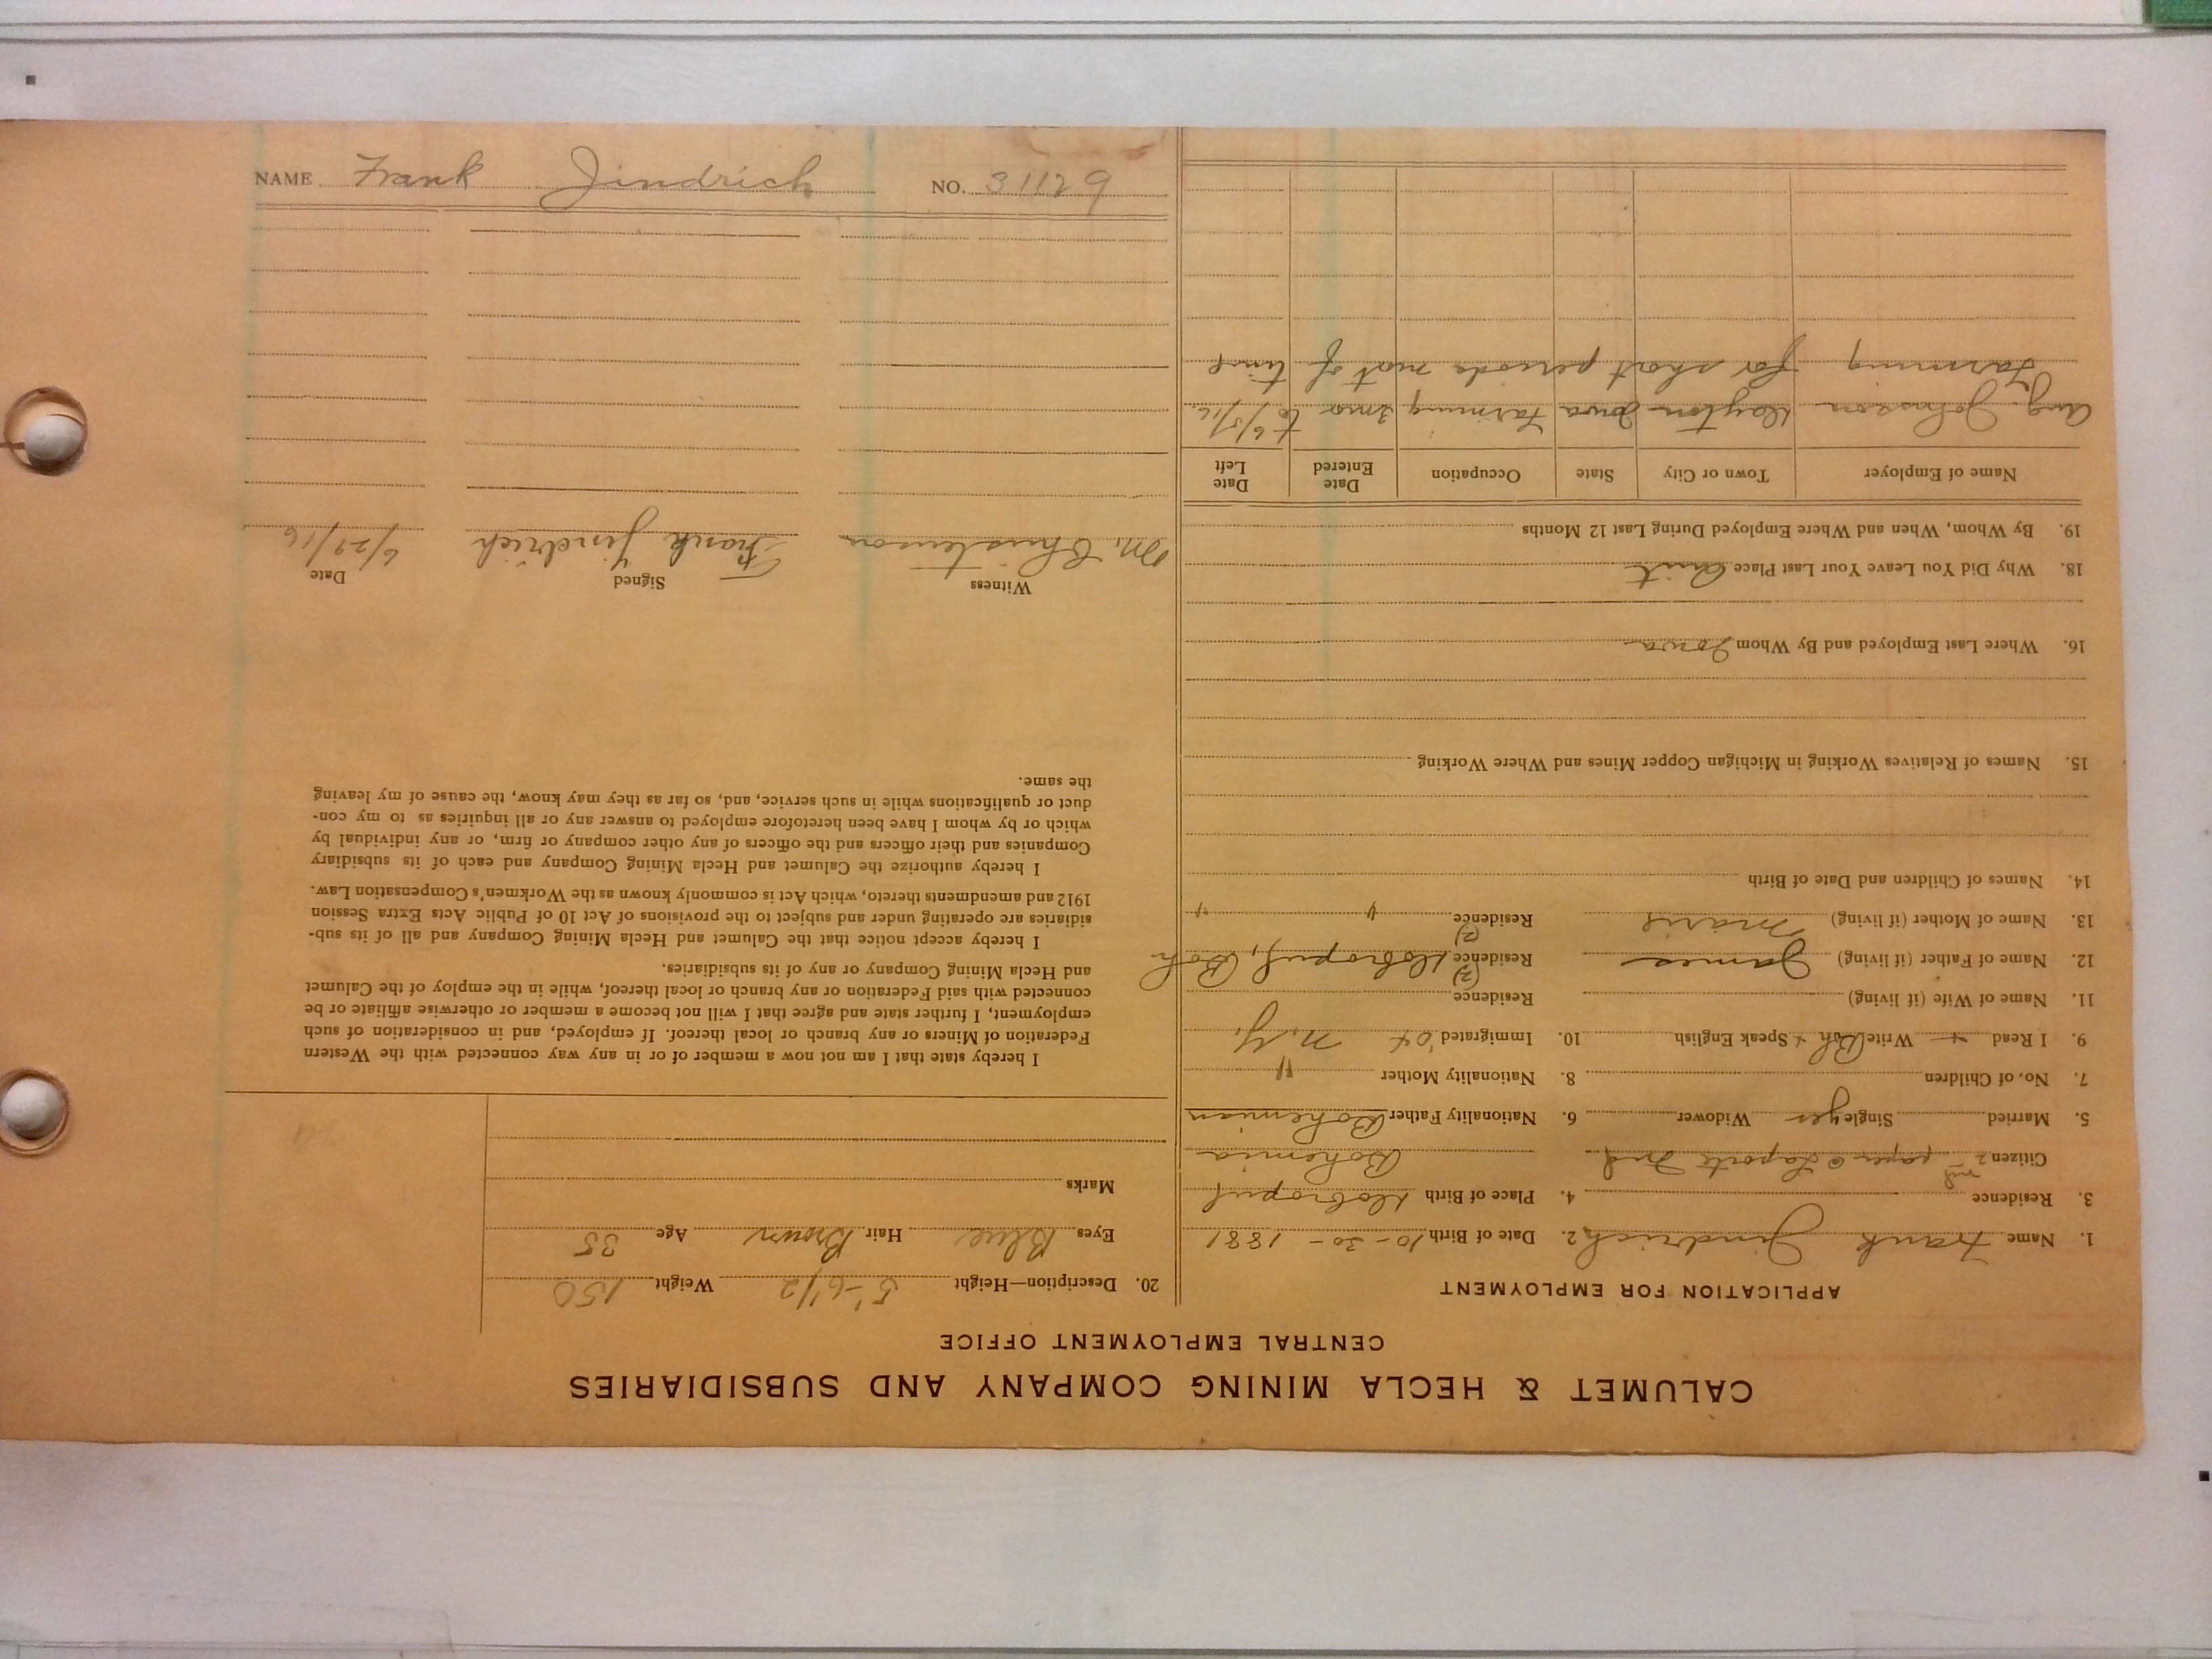 CALUMET & HECLA MINING COMPANY AND SUBSIDIARIES
CENTRAL EMPLOYMENT OFFICE
APPLICATION FOR EMPLOYMENT
1. Name Frank Jindrich 2. Date of Birth 10-30-1881
3. Residence 4. Place of Birth
Citizen paper @ Laporte Ind Bohemia
5. Married Single yes Widower 6. Nationality Father Bohemian
7. No. of Children 8. Nationality Mother "
9. I Read + Write Boh + Speak English 10. Immigrated '04 N.Y.
11. Name of Wife (if living) Residence
12. Name of Father (if living) James Residence (?) Boh
13. Name of Mother (if living) Marie Residence (?) " "
14. Names of Children and Date of Birth
15. Names of Relatives Working in Michigan Copper Mines and Where Working
16. Where Last Employed and By Whom Iowa
18. Why Did You Leave Your Last Place Quit
19. By Whom, When and Where Employed During Last 12 Months
Name of Employer Town or City State Occupation Date Entered Date Left
Aug. Johnson Klayton Iowa Farming 3mo to 6/5/16
Farming for short periods most of time
20. Description—Height 5'-6 1/2 Weight 150
Eyes Blue Hair Brown Age 35
Marks
I hereby state that I am not now a member of or in any way connected with the Western
Federation of Miners or any branch or local thereof. If employed, and in consideration of such
employment, I further state and agree that I will not become a member or otherwise affiliate or be
connected with said Federation or any branch or local thereof, while in the employ of the Calumet
and Hecla Mining Company or any of its subsidiaries.
I hereby accept notice that the Calumet and Hecla Mining Company and all of its sub-
sidiaries are operating under and subject to the provisions of Act 10 of Public Acts Extra Session
1912 and amendments thereto, which Act is commonly known as the Workmen's Compensation Law.
I hereby authorize the Calumet and Hecla Mining Company and each of its subsidiary
Companies and their officers and the officers of any other company or firm, or any individual by
which or by whom I have been heretofore employed to answer any or all inquiries as to my con-
duct or qualifications while in such service, and, so far as they may know, the cause of my leaving
the same.
Witness Signed Date
M. Christenson Frank Jindřich 6/29/16
NAME Frank Jindrich NO. 31129